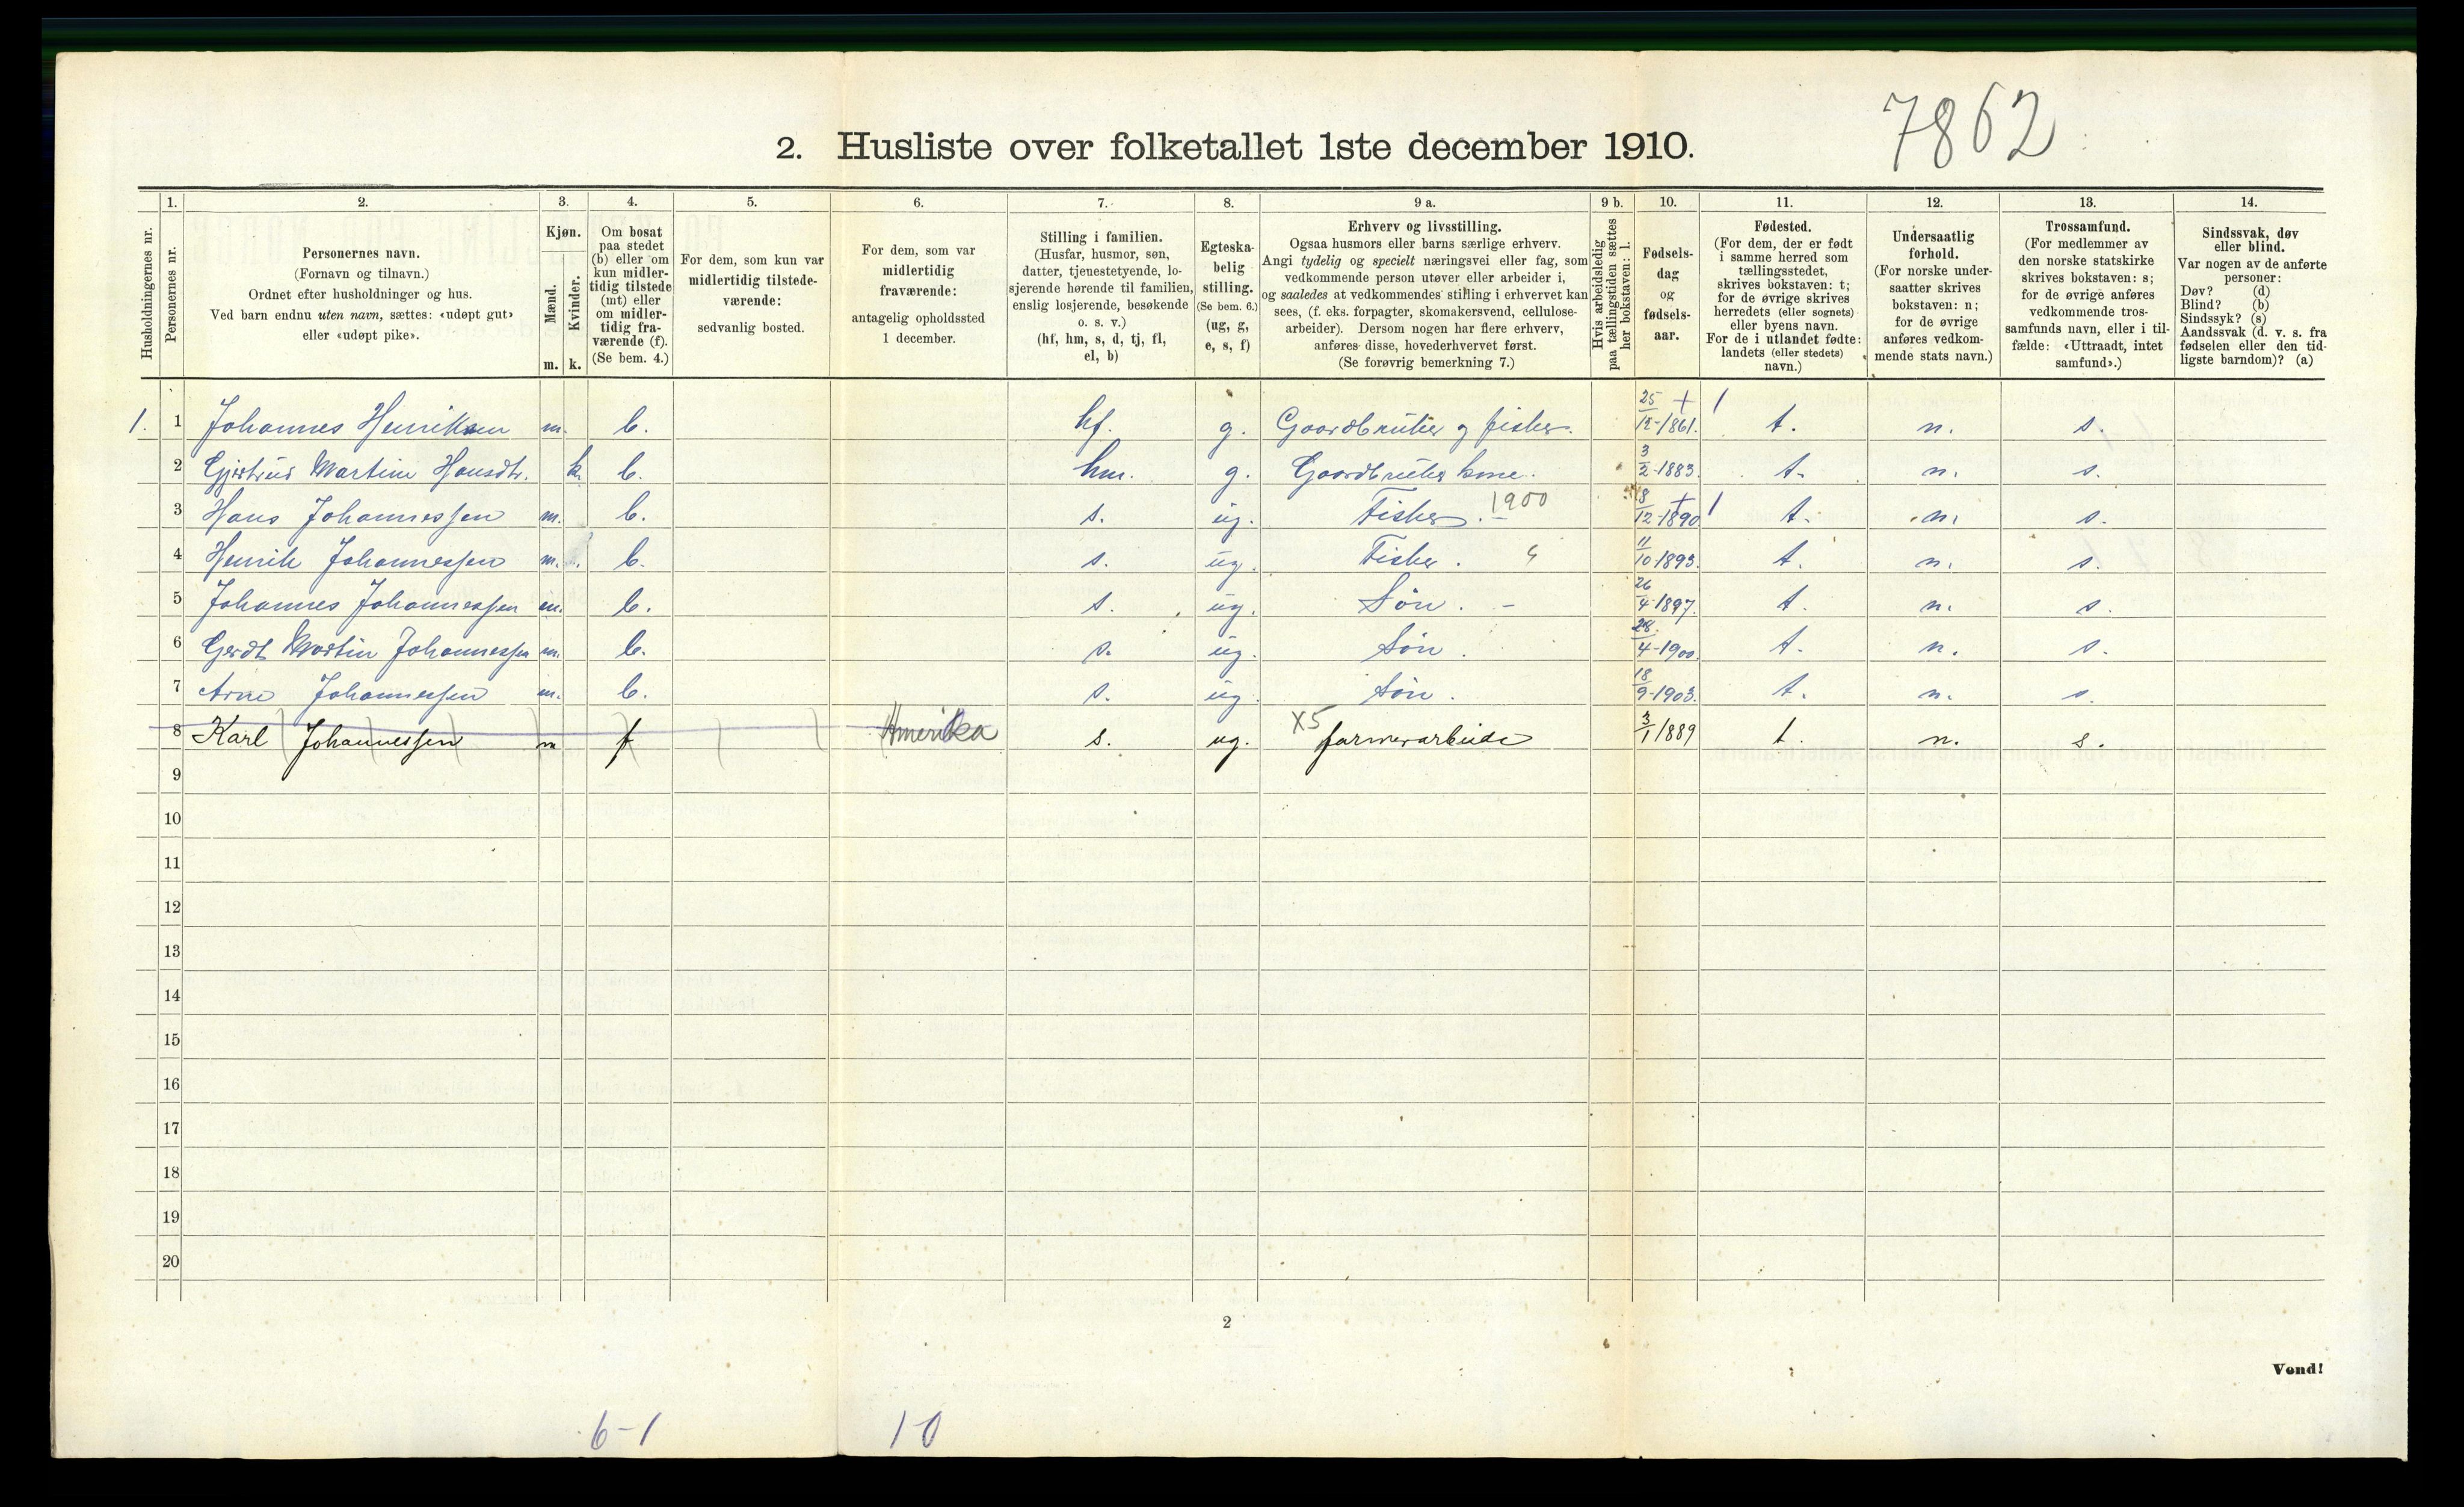 7862
2. Husliste over folketallet 1ste december 1910.
Husholdningernes nr.
1.
Personernes nr.
2.
Personernes navn.
(Fornavn og tilnavn.)
Ordnet efter husholdninger og hus.
Ved barn endnu uten navn, sættes: «udøpt gut»
eller «udøpt pike».
3.
Kjøn.
Mænd.
Kvinder.
m. k.
4.
Om bosat
paa stedet
(b) eller om
kun midler-
tidig tilstede
(mt) eller
om midler-
tidig fra-
værende (f).
(Se bem. 4.)
5.
For dem, som kun var
midlertidig tilstede-
værende:
sedvanlig bosted.
6.
For dem, som var
midlertidig
fraværende:
antagelig opholdssted
1 december.
7.
Stilling i familien.
(Husfar, husmor, søn,
datter, tjenestetyende, lo-
sjerende hørende til familien,
enslig losjerende, besøkende
o. s. v.)
(hf, hm, s, d, tj, fl,
el, b)
8.
Egteska-
belig
stilling.
(Se bem. 6.)
(ug, g,
e, s, f)
9 a.
Erhverv og livsstilling.
Ogsaa husmors eller barns særlige erhverv.
Angi tydelig og specielt næringsvei eller fag, som
vedkommende person utøver eller arbeider i,
og saaledes at vedkommendes stilling i erhvervet kan
sees, (f. eks. forpagter, skomakersvend, cellulose-
arbeider). Dersom nogen har flere erhverv,
anføres disse, hovederhvervet først.
(Se forøvrig bemerkning 7.)
9 b.
Hvis arbeidsledig
paa tællingstiden sættes
her bokstaven: l.
10.
Fødsels-
dag
og
fødsels-
aar.
11.
Fødested.
(For dem, der er født
i samme herred som
tællingsstedet,
skrives bokstaven: t;
for de øvrige skrives
herredets (eller sognets)
eller byens navn.
For de i utlandet fødte:
landets (eller stedets)
navn.)
12.
Undersaatlig
forhold.
(For norske under-
saatter skrives
bokstaven: n;
for de øvrige
anføres vedkom-
mende stats navn.)
13.
Trossamfund.
(For medlemmer av
den norske statskirke
skrives bokstaven: s;
for de øvrige anføres
vedkommende tros-
samfunds navn, eller i til-
fælde: «Uttraadt, intet
samfund».)
14.
Sindssvak, døv
eller blind.
Var nogen av de anførte
personer:
Døv? (d)
Blind? (b)
Sindssyk? (s)
Aandssvak (d. v. s. fra
fødselen eller den tid-
ligste barndom)? (a)
1. 1 Johannes Henriksen m. b. hf. g. Gaardbruker og fisker. 25/12-1861. t. n. s.
2 Gjertrud Martine Hansdtr. k. b. hm. g. Gaardbruker kone. 3/2-1883. t. n. s.
3 Hans Johannessen m. b. s. ug. Fisker. 1900 18/12-1890 t. n. s.
4 Henrik Johannessen m. b. s. ug. Fisker. 11/10-1893. t. n. s.
5 Johannes Johannessen m. b. s. ug. Søn. - 26/4-1897. t. n. s.
6 Gerdt Martin Johannessen m. b. s. ug. Søn. 28/4-1900. t. n. s.
7 Arne Johannessen m. b. s. ug. Søn. 18/9-1903. t. n. s.
8 Karl Johannessen m f Amerika s. ug. X5 farmerarbeide 3/1 1889 t. n. s.
9
10
11
12
13
14
15
16
17
18
19
20
2
Vend!
6-1 1-0